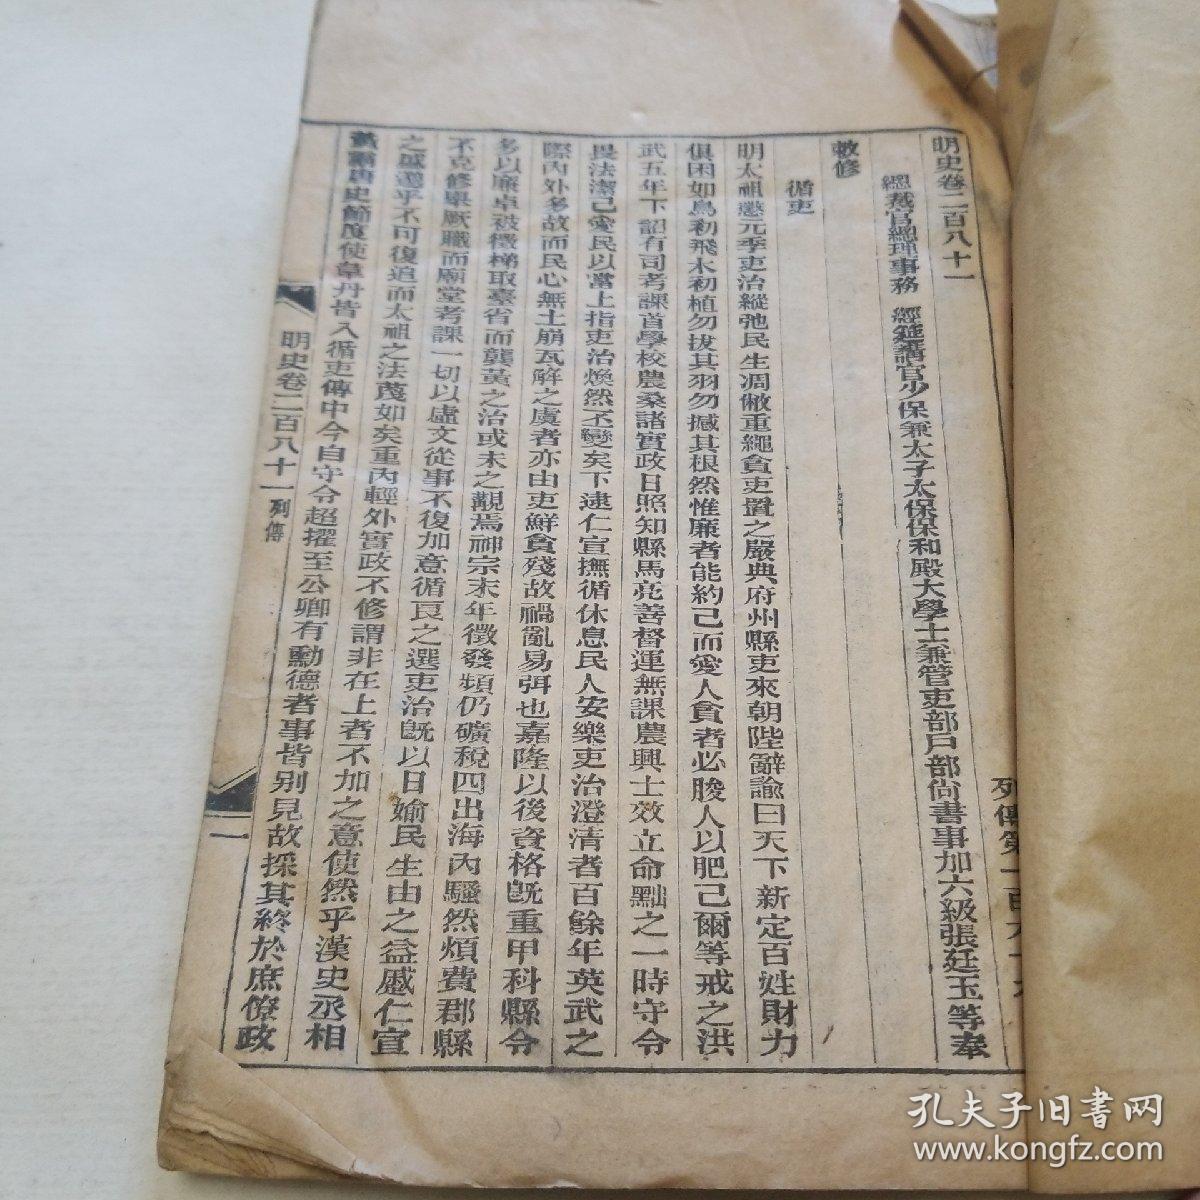 明史卷二百八十一
列傳第一百六十九
總裁官總理事務 經筵講官少保兼太子太保保和殿大學士兼管吏部戶部尚書事加六級張廷玉等奉
敕修
循吏
明太祖懲元季吏治縱弛民生凋敝重繩貪吏置之嚴典府州縣吏來朝陛辭諭曰天下新定百姓財力
俱困如鳥初飛木初植勿拔其羽勿撼其根然惟廉者能約己而愛人貪者必朘人以肥己爾等戒之洪
武五年下詔有司考課首學校農桑諸實政日照知縣馬亮善督運無課農興士效立命黜之一時守令
畏法潔己愛民以當上指吏治煥然丕變矣下逮仁宣撫循休息民人安樂吏治澄清者百餘年英武之
際內外多故而民心無土崩瓦解之虞者亦由吏鮮貪殘故禍亂易弭也嘉隆以後資格旣重甲科縣令
多以廉卓被徵梯取臺省而龔黃之治或未之覯焉神宗末年徵發頻仍礦稅四出海內騷然煩費郡縣
不克修舉厥職而廟堂考課一切以虛文從事不復加意循良之選吏治旣以日媮民生由之益蹙仁宣
之盛邈乎不可復追而太祖之法蔑如矣重內輕外實政不修謂非在上者不加之意使然乎漢史丞相
黃霸唐史節度使韋丹皆入循吏傳中今自守令超擢至公卿有勳德者事皆别見故採其終於庶僚政
明史卷二百八十一 列傳
一
孔夫子旧书网
www.kongfz.com